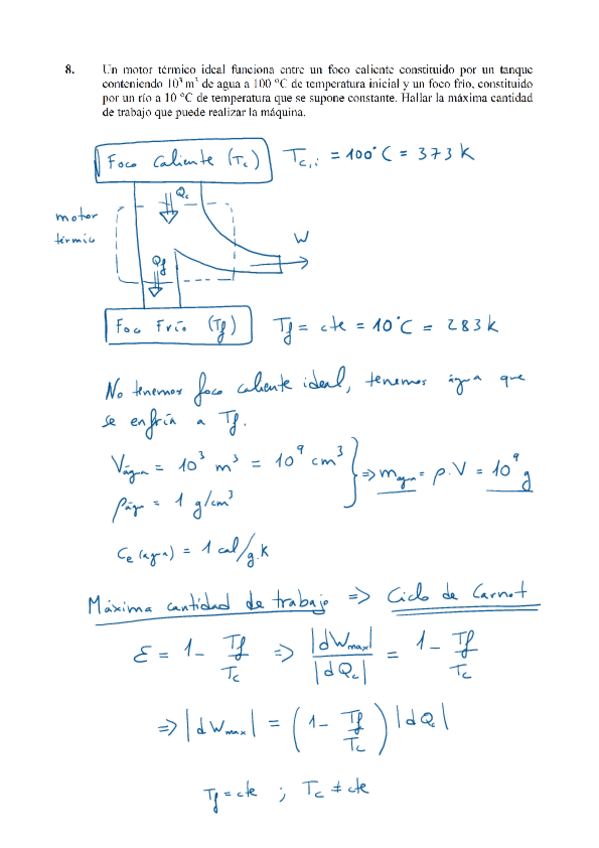 8. Un motor térmico ideal funciona entre un foco caliente constituido por un tanque
conteniendo 10³ m³ de agua a 100 ºC de temperatura inicial y un foco frío, constituido
por un río a 10 ºC de temperatura que se supone constante. Hallar la máxima cantidad
de trabajo que puede realizar la máquina.
Foco Caliente (Tc) Tc,i = 100°C = 373 k
Qc
motor
térmico
W
Qf
Foco Frío (Tf) Tf = cte = 10°C = 283 k
No tenemos foco caliente ideal, tenemos agua que
se enfría a Tf.
Vagua = 10³ m³ = 10⁹ cm³ => magua = ρ.V = 10⁹ g
ρagua = 1 g/cm³
Ce (agua) = 1 cal/g.k
Máxima cantidad de trabajo => Ciclo de Carnot
ε = 1 - Tf/Tc => |dWmax|/|dQc| = 1 - Tf/Tc
=> |dWmax| = (1 - Tf/Tc) |dQc|
Tf = cte ; Tc ≠ cte